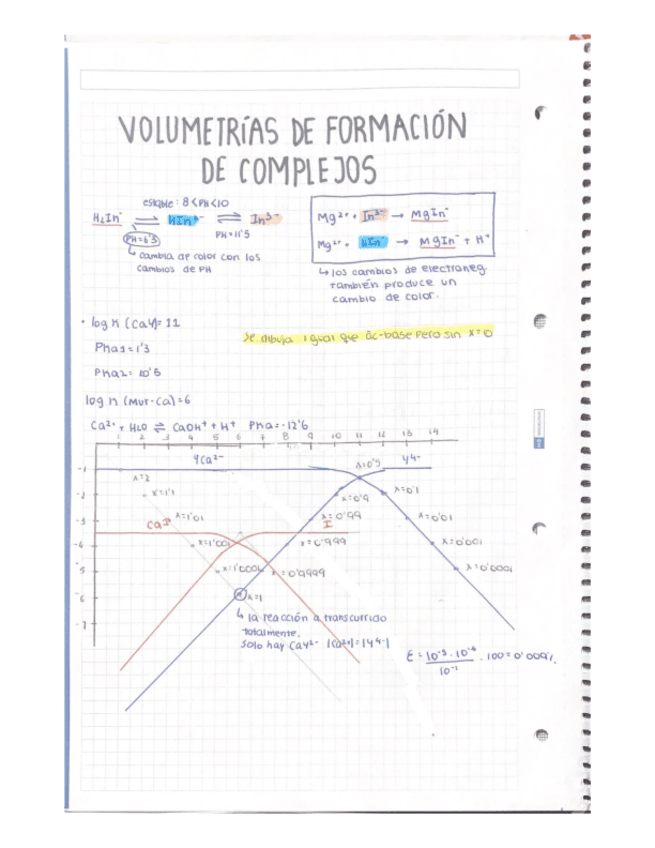 VOLUMETRÍAS DE FORMACIÓN
DE COMPLEJOS
estable: 8<PH<10
H₂In⁻ ⇌ HIn²⁻ ⇌ In³⁻
PH=6'3
PH=11'5
↳ cambia de color con los
cambios de PH
Mg²⁺ + In³⁻ → MgIn⁻
Mg²⁺ + HIn²⁻ → MgIn⁻ + H⁺
↳ los cambios de electroneg.
también produce un
cambio de color.
• log K (CaY)= 11
Pha1=1'3
Pha2= 10'5
Se dibuja igual que ác-base pero sin x=0
log K (Mur-Ca)=6
Ca²⁺ + H₂O ⇌ CaOH⁺ + H⁺ Pha=-12'6
1 2 3 4 5 6 7 8 9 10 11 12 13 14
-1
-2
-3
-4
-5
-6
-7
YCa²⁻
x=0'5
Y⁴⁻
x=2
x=1'1
x=1'01
x=1'001
x=1'0001
x=1
x=0'9
x=0'99
x=0'999
x=0'9999
x=0'1
x=0'01
x=0'001
x=0'0001
CaI
I
↳ la reacción a transcurrido
totalmente.
Solo hay CaY²⁻ |Ca²⁺|=|Y⁴⁻|